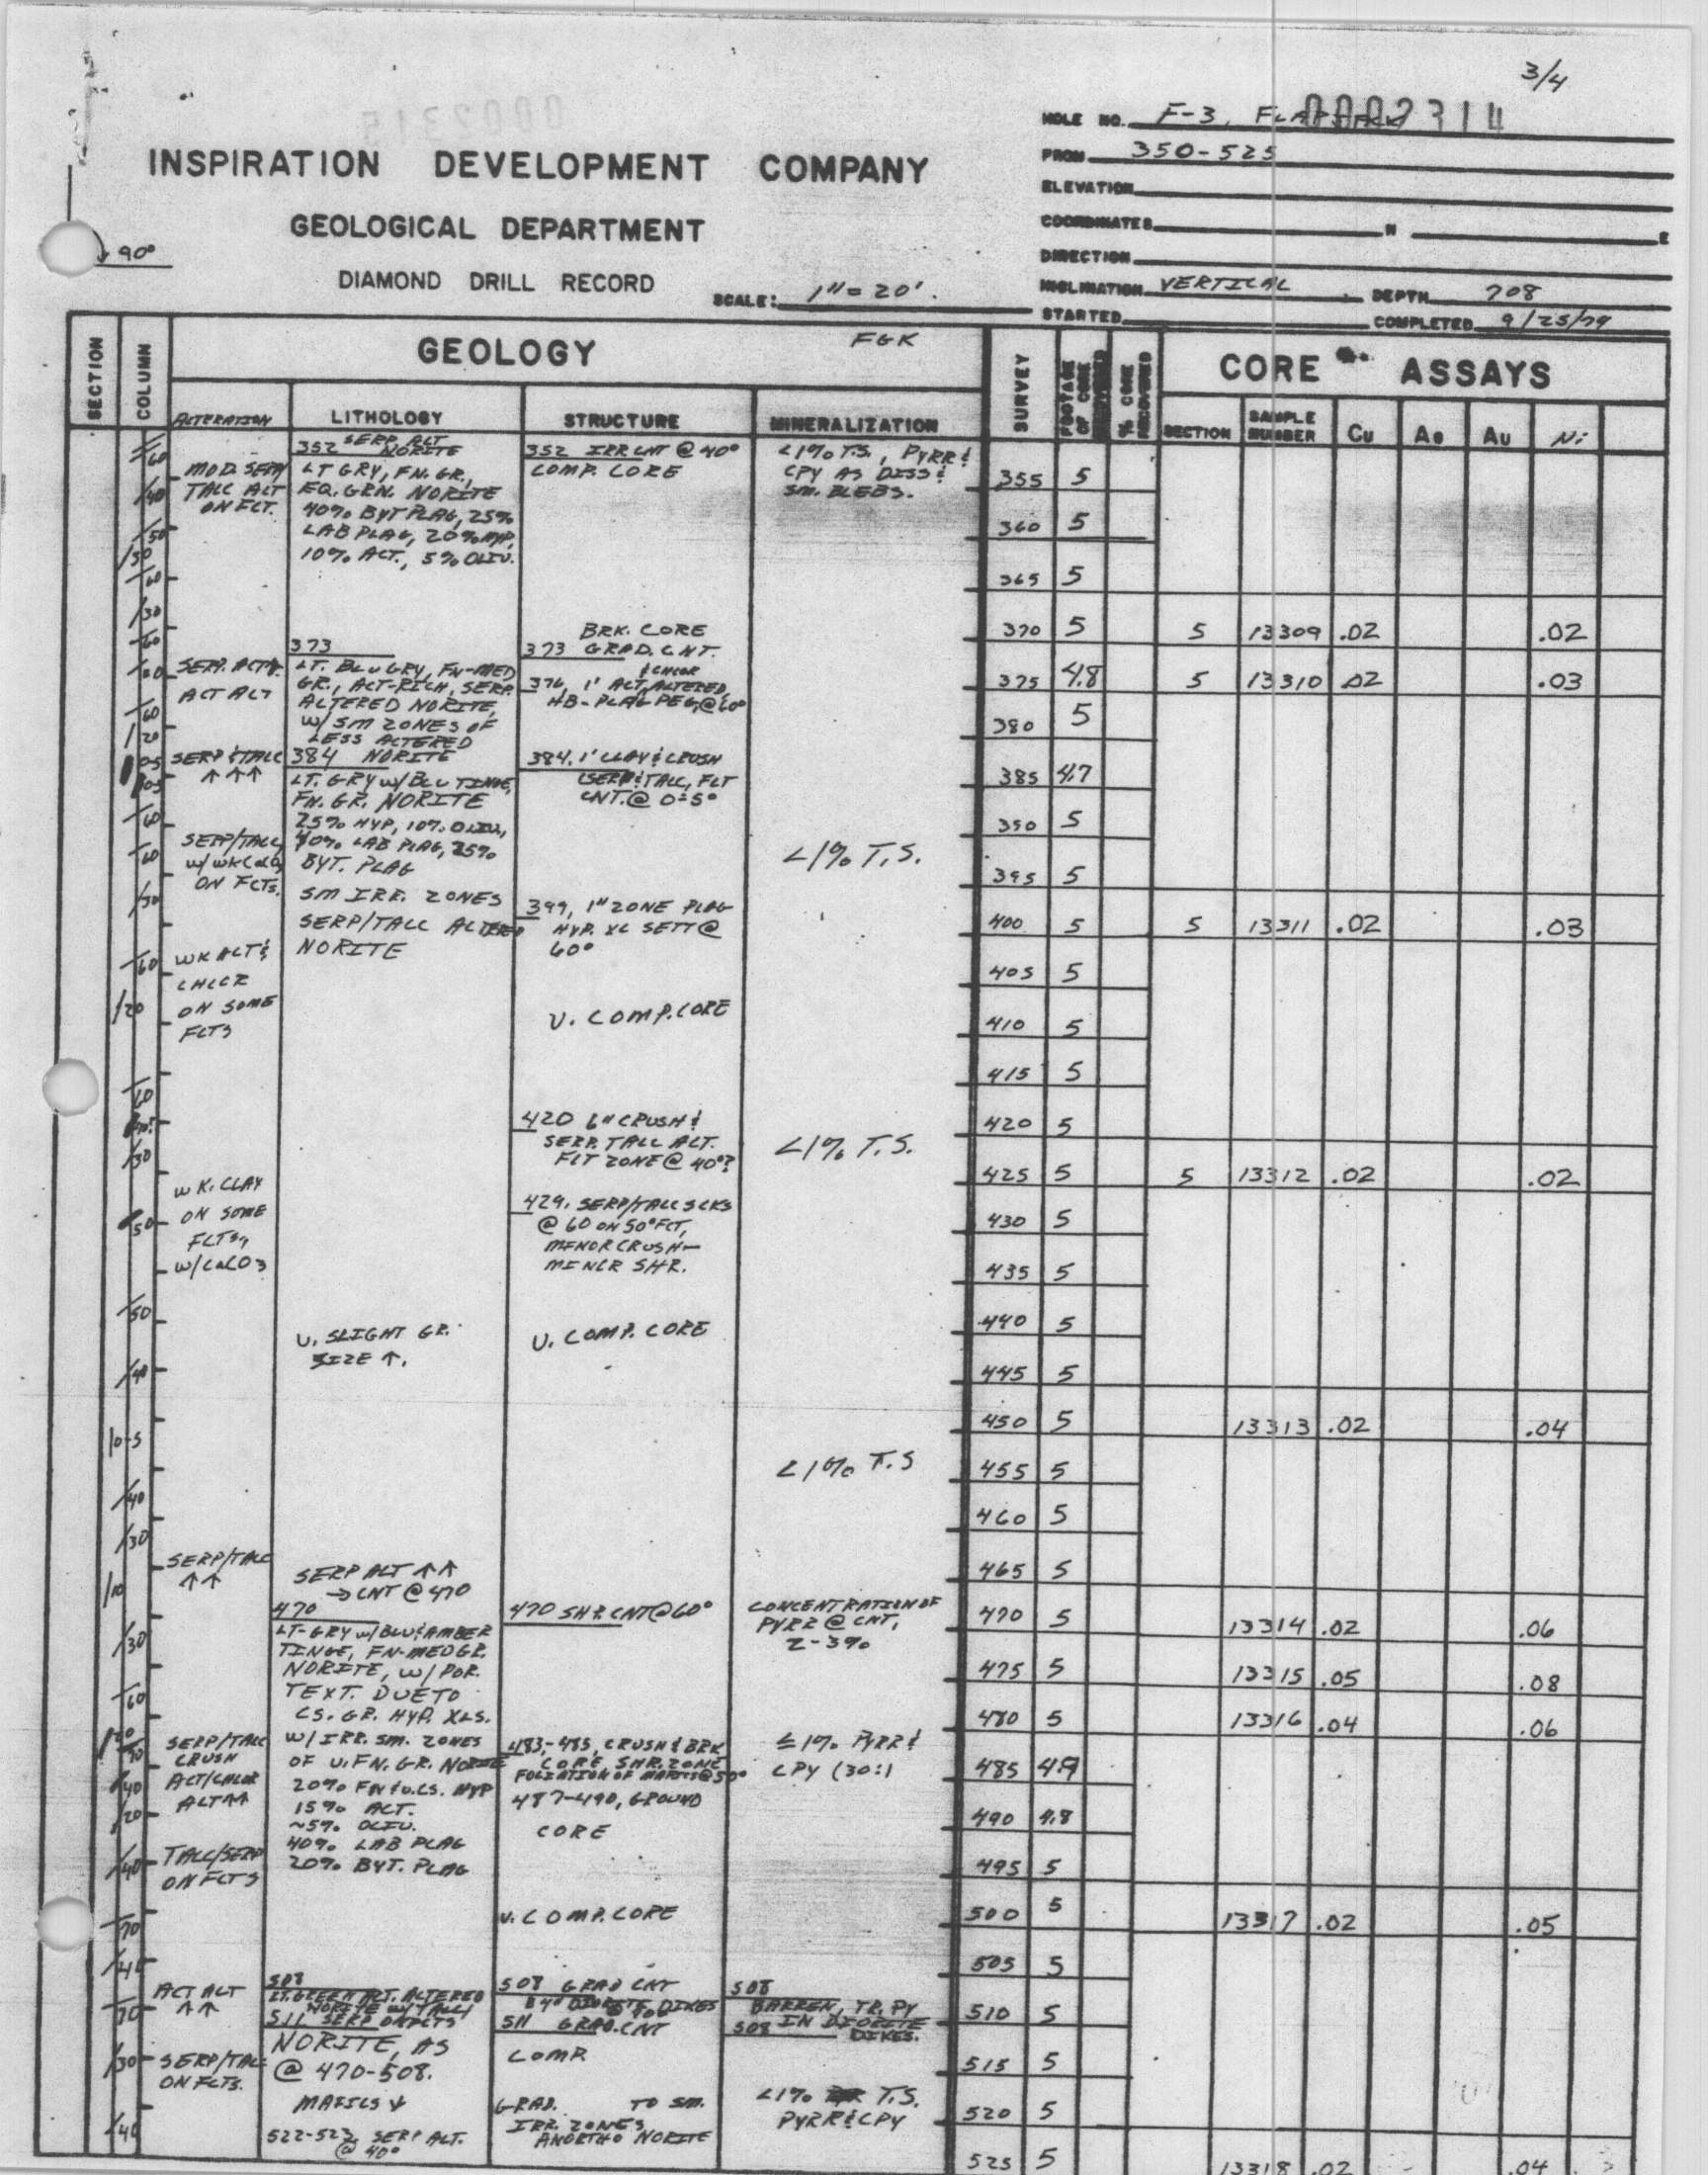 3/4
HOLE NO. F-3, FLAPJACK
0002314
INSPIRATION DEVELOPMENT COMPANY
FROM 350-525
ELEVATION
GEOLOGICAL DEPARTMENT
COORDINATES N E
90°
DIRECTION
DIAMOND DRILL RECORD
SCALE: 1"= 20'.
INCLINATION VERTICAL DEPTH 708
STARTED COMPLETED 9/25/79
SECTION
COLUMN
GEOLOGY
FGK
SURVEY
FOOTAGE OF CORE RECOVERED
% CORE RECOVERED
CORE ASSAYS
ALTERATION LITHOLOGY STRUCTURE MINERALIZATION
SECTION SAMPLE NUMBER Cu Ag Au Ni
MOD. SERP/
TALC ALT
ON FCT.
SERP. ACT
ACT ALT
SERP & TALC
↑↑↑
SERP/TALC
w/ WK CaCO3
ON FCTS.
WK ALT &
CHLOR
ON SOME
FCTS
WK. CLAY
ON SOME
FCTS,
W/CaCO3
SERP/TALC
↑↑
SERP/TALC
CRUSH
ACT/CHLOR
ALT↑↑
TALC/SERP
ON FCTS
ACT ALT
↑↑
SERP/TALC
ON FCTS.
352 SERP. ALT
NORITE
LT GRY, FN. GR.,
EQ. GRN. NORITE
40% BYT PLAG, 25%
LAB PLAG, 20% HYP,
10% ACT., 5% OLIV.
373
LT. BLU GRY, FN-MED
GR., ACT-RICH, SERP.
ALTERED NORITE,
W/ SM ZONES OF
LESS ALTERED
384 NORITE
LT. GRY w/ BLU TINGE,
FN. GR. NORITE
25% HYP, 10% OLIV,
40% LAB PLAG, 25%
BYT. PLAG
SM IRR. ZONES
SERP/TALC ALTERED
NORITE
V. SLIGHT GR.
SIZE ↑.
SERP ALT ↑↑
→ CNT @ 470
470
LT-GRY w/ BLU & AMBER
TINGE, FN-MED GR.
NORITE, W/ POR.
TEXT. DUE TO
CS. GR. HYP. XLS.
W/ IRR. SM. ZONES
OF V. FN. GR. NORITE
20% FN & V. CS. HYP
15% ACT.
~5% OLIV.
40% LAB PLAG
20% BYT. PLAG
508
LT. GREEN ACT. ALTERED
NORITE W/ TALC/
511 SERP ON FCTS
NORITE, AS
@ 470-508.
MAFICS ↓
522-523, SERP ALT.
@ 40°
352 IRR CNT @ 40°
COMP. CORE
BRK. CORE
373 GRAD. CNT.
& CHLOR
376, 1' ACT, ALTERED,
HB-PLAG PEG, @ 60°
384, 1' CLAY & CRUSH
(SERP & TALC, FLT
CNT. @ 0-5°
399, 1" ZONE PLAG
HYP. XL SETT @
60°
V. COMP. CORE
420 6" CRUSH &
SERP. TALC ALT.
FLT ZONE @ 40°?
429. SERP/TALC SCKS
@ 60 ON 50° FCT,
MINOR CRUSH-
MINOR SHR.
V. COMP. CORE
470 SHR CNT @ 60°
483-485, CRUSH & BRK
CORE SHR. ZONE
FOLIATION OF MAFICS @ 50°
487-490, GROUND
CORE
V. COMP. CORE
508 GRAD CNT
DIORITE DIKES
511 GRAD. CNT
COMP
GRAD. TO SM.
IRR. ZONES
ANORTHO NORITE
<1% T.S., PYRR &
CPY AS DISS &
SM. BLEBS.
<1% T.S.
<1% T.S.
<1% T.S
CONCENTRATION OF
PYRR @ CNT,
2-3%
≤1% PYRR &
CPY (30:1
508
BARREN, TR. PY
IN DIORITE
508 DIKES.
<1% T.S.
PYRR & CPY
355 5
360 5
365 5
370 5 5 13309 .02 .02
375 4.8 5 13310 .02 .03
380 5
385 4.7
390 5
395 5
400 5 5 13311 .02 .03
405 5
410 5
415 5
420 5
425 5 5 13312 .02 .02
430 5
435 5
440 5
445 5
450 5 13313 .02 .04
455 5
460 5
465 5
470 5 13314 .02 .06
475 5 13315 .05 .08
480 5 13316 .04 .06
485 4.9
490 4.8
495 5
500 5 13317 .02 .05
505 5
510 5
515 5
520 5
525 5 13318 .02 .04